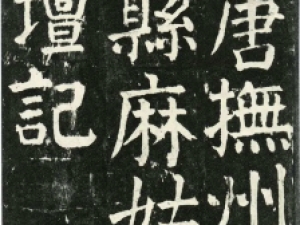 唐撫州
縣麻姑
壇記